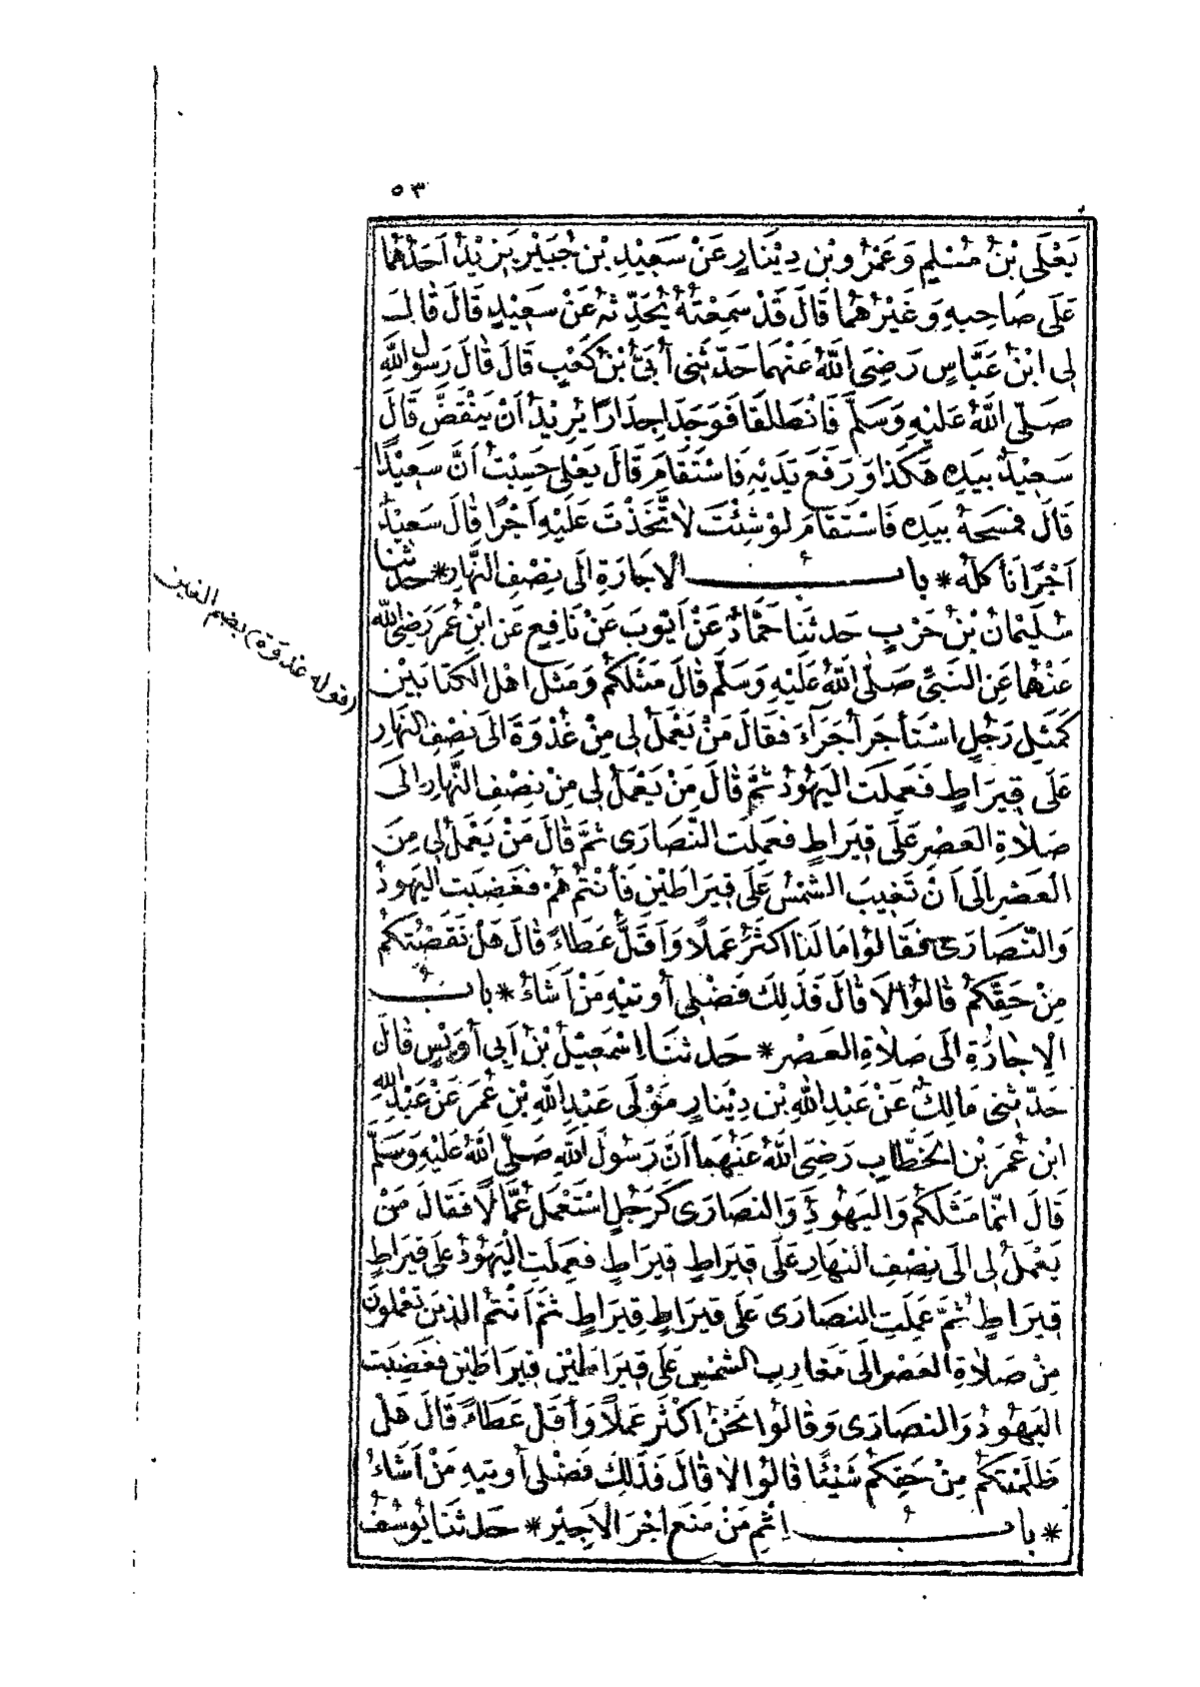 ٥٣
يَعْلَى بْنُ مُسْلِمٍ وَعَمْرُو بْنِ دِينَارٍ عَنْ سَعِيْدِ بْنِ جُبَيْرٍ يَزِيْدُ اَحَدُهُمَا
عَلَى صَاحِبِهِ وَغَيْرُهُمَا قَالَ قَدْ سَمِعْتُهُ يُحَدِّثُهُ عَنْ سَعِيْدٍ قَالَ قَالَ
لِى ابْنُ عَبَّاسٍ رَضِىَ اللهُ عَنْهُمَا حَدَّثَنِى أُبَىُّ بْنُ كَعْبٍ قَالَ قَالَ رَسُولُ اللهِ
صَلَّى اللهُ عَلَيْهِ وَسَلَّمَ فَانْطَلَقَا فَوَجَدَا جِدَارًا يُرِيْدُ اَنْ يَنْقَضَّ قَالَ
سَعِيْدٌ بِيَدِهِ هٰكَذَا وَرَفَعَ يَدَيْهِ فَاسْتَقَامَ قَالَ يَعْلَى حَسِبْتُ اَنَّ سَعِيْدًا
قَالَ فَمَسَحَهُ بِيَدِهِ فَاسْتَقَامَ لَوْ شِئْتَ لَاتَّخَذْتَ عَلَيْهِ اَجْرًا قَالَ سَعِيْدٌ
اَجْرًا نَأْكُلُهُ * بابُ الْاِجَارَةِ اِلَى نِصْفِ النَّهَارِ * حَدَّثَنَا
سُلَيْمَانُ بْنُ حَرْبٍ حَدَّثَنَا حَمَّادٌ عَنْ اَيُّوبَ عَنْ نَافِعٍ عَنِ ابْنِ عُمَرَ رَضِىَ اللهُ
عَنْهُمَا عَنِ النَّبِىِّ صَلَّى اللهُ عَلَيْهِ وَسَلَّمَ قَالَ مَثَلُكُمْ وَمَثَلُ اَهْلِ الْكِتَابَيْنِ
كَمَثَلِ رَجُلٍ اسْتَأْجَرَ أُجَرَآءَ فَقَالَ مَنْ يَعْمَلُ لِى مِنْ غُدْوَةَ اِلَى نِصْفِ النَّهَارِ
عَلَى قِيرَاطٍ فَعَمِلَتِ الْيَهُودُ ثُمَّ قَالَ مَنْ يَعْمَلُ لِى مِنْ نِصْفِ النَّهَارِ اِلَى
صَلَاةِ الْعَصْرِ عَلَى قِيرَاطٍ فَعَمِلَتِ النَّصَارَى ثُمَّ قَالَ مَنْ يَعْمَلُ لِى مِنَ
الْعَصْرِ اِلَى اَنْ تَغِيبَ الشَّمْسُ عَلَى قِيرَاطَيْنِ فَأَنْتُمْ هُمْ فَغَضِبَتِ الْيَهُودُ
وَالنَّصَارَى فَقَالُوْا مَا لَنَا اَكْثَرُ عَمَلًا وَاَقَلُّ عَطَاءً قَالَ هَلْ نَقَصْتُكُمْ
مِنْ حَقِّكُمْ قَالُوْا لَا قَالَ فَذٰلِكَ فَضْلِى أُوتِيْهِ مَنْ اَشَاءُ * بابُ
الْاِجَارَةِ اِلَى صَلَاةِ الْعَصْرِ * حَدَّثَنَا اِسْمٰعِيْلُ بْنُ اَبِى أُوَيْسٍ قَالَ
حَدَّثَنِى مَالِكٌ عَنْ عَبْدِ اللهِ بْنِ دِيْنَارٍ مَوْلَى عَبْدِ اللهِ بْنِ عُمَرَ عَنْ عَبْدِ اللهِ
ابْنِ عُمَرَ بْنِ الْخَطَّابِ رَضِىَ اللهُ عَنْهُمَا اَنَّ رَسُوْلَ اللهِ صَلَّى اللهُ عَلَيْهِ وَسَلَّمَ
قَالَ اِنَّمَا مَثَلُكُمْ وَالْيَهُوْدِ وَالنَّصَارَى كَرَجُلٍ اسْتَعْمَلَ عُمَّالًا فَقَالَ مَنْ
يَعْمَلُ لِى اِلَى نِصْفِ النَّهَارِ عَلَى قِيْرَاطٍ قِيْرَاطٍ فَعَمِلَتِ الْيَهُوْدُ عَلَى قِيْرَاطٍ
قِيْرَاطٍ ثُمَّ عَمِلَتِ النَّصَارَى عَلَى قِيْرَاطٍ قِيْرَاطٍ ثُمَّ اَنْتُمُ الَّذِيْنَ تَعْمَلُوْنَ
مِنْ صَلَاةِ الْعَصْرِ اِلَى مَغَارِبِ الشَّمْسِ عَلَى قِيْرَاطَيْنِ قِيْرَاطَيْنِ فَغَضِبَتِ
الْيَهُوْدُ وَالنَّصَارَى وَقَالُوْا نَحْنُ اَكْثَرُ عَمَلًا وَأَقَلُّ عَطَاءً قَالَ هَلْ
ظَلَمْتُكُمْ مِنْ حَقِّكُمْ شَيْئًا قَالُوْا لَا قَالَ فَذٰلِكَ فَضْلِى أُوتِيهِ مَنْ اَشَاءُ
* بابُ اِثْمِ مَنْ مَنَعَ اَجْرَ الْاَجِيْرِ * حَدَّثَنَا يُوْسُفُ
(قوله غدوة) بضم الغين